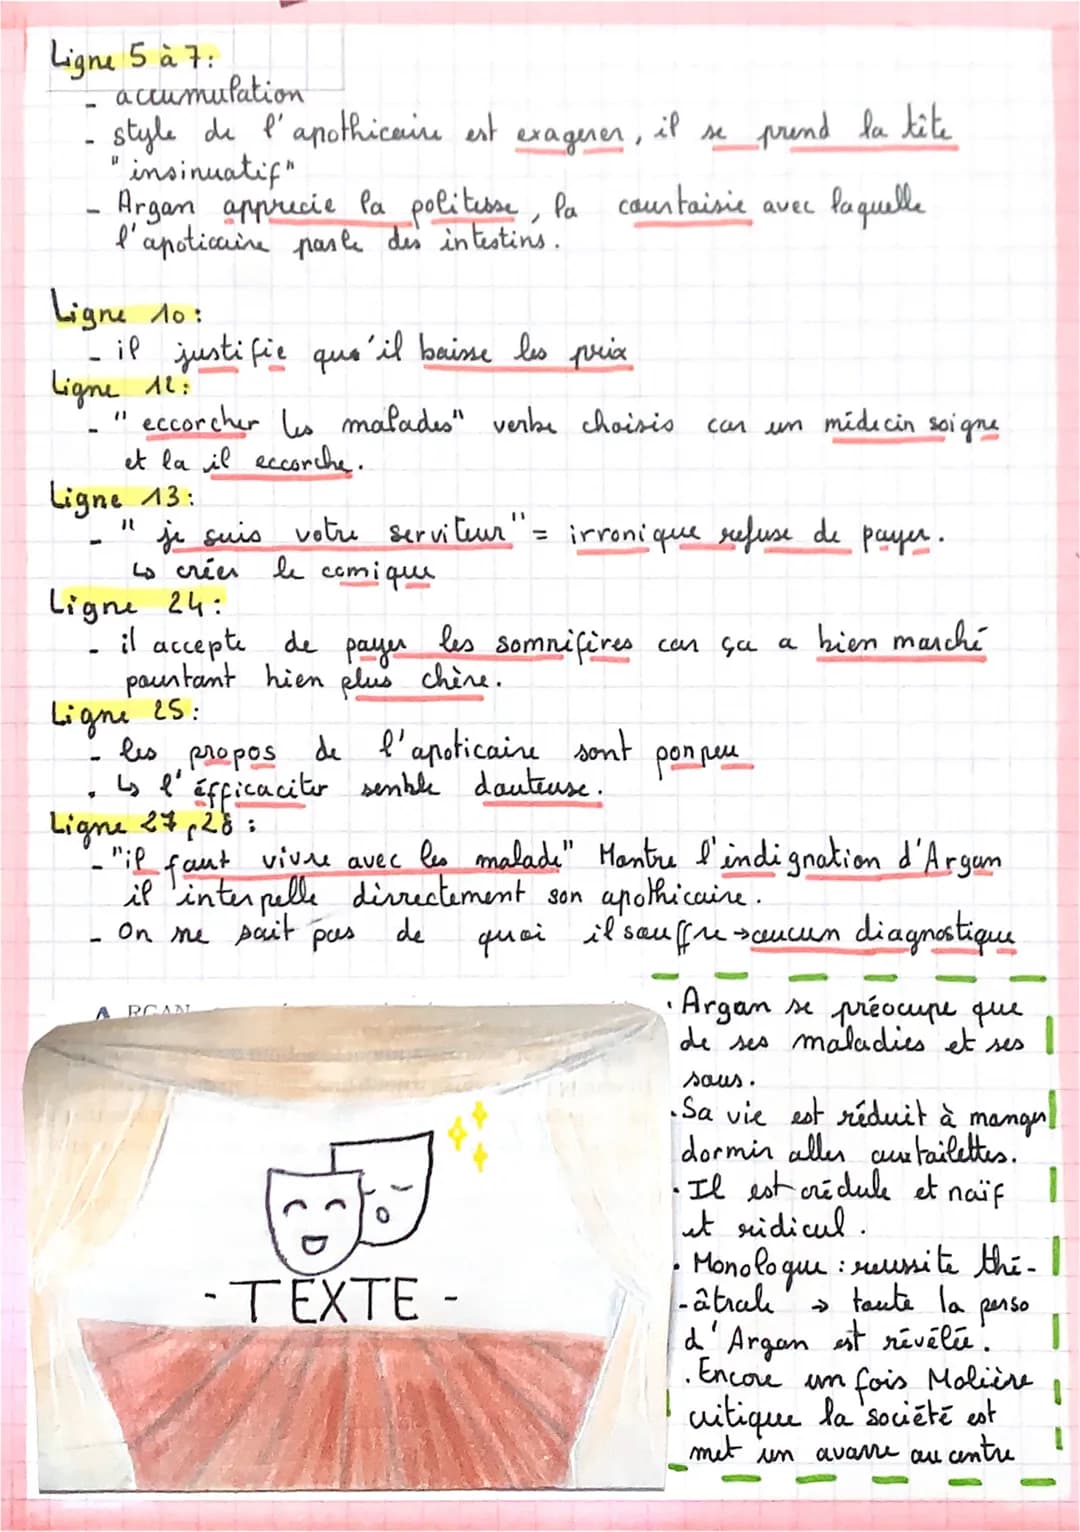 Ligne 5 à 7:
- accumulation
- style de l'apothicaire est exagerer, il se prend la tête
"insinuatif"
- Argan apprecie la politesse, la courtaisie avec laquelle
l'apoticaire parle des intestins.
Ligne 10:
- il justifie que'il baisse les prix
Ligne 12:
- "eccorcher les malades" verbe choisis car un médecin soigne
et la il eccorche.
Ligne 13:
- "je suis votre serviteur" = irronique refuse de payer.
↳ créer le comique
Ligne 24:
- il accepte de payer les somnifères car ça a bien marché
pourtant bien plus chère.
Ligne 25:
- les propos de l'apoticaire sont ponpeu
. ↳ l'éfficaciter semble douteuse.
Ligne 27, 28:
- "il faut vivre avec les malade" Montre l'indignation d'Argan
il interpelle dirrectement son apothicaire.
- On ne sait pas de quoi il souffre → aucun diagnostique
ARGAN
- TEXTE -
· Argan se préocupe que
de ses maladies et ses
sous.
· Sa vie est réduit à manger
dormir aller aux toilettes.
· Il est crédule et naïf
et ridicul.
· Monologue : reussite thé-
-âtrale → toute la perso
d'Argan est révélée.
. Encore un fois Molière
critique la société est
met un avarre au centre